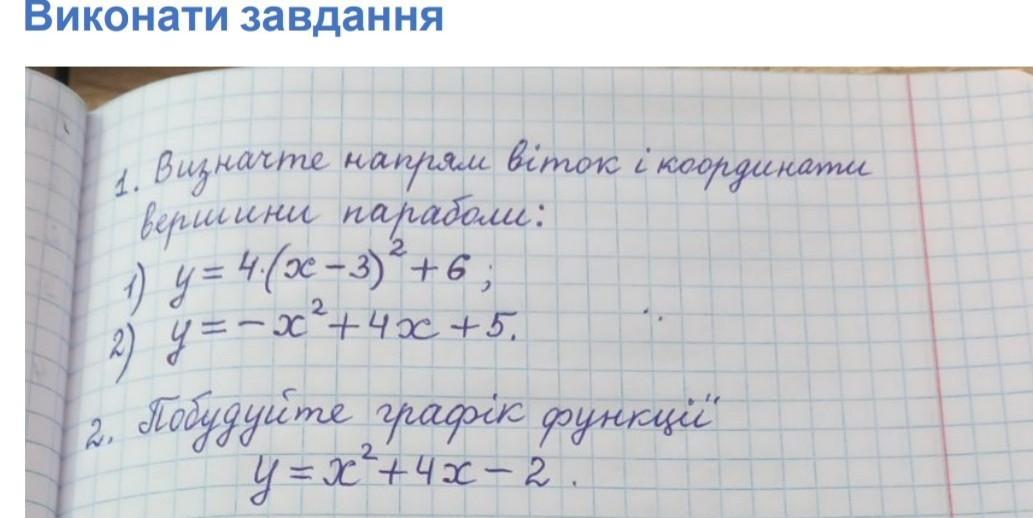 Виконати завдання
1. Визначте напрям віток і координати
вершини параболи:
1) y = 4·(x – 3)² + 6 ;
2) y = – x² + 4x + 5.
2. Побудуйте графік функції
y = x² + 4x – 2 .